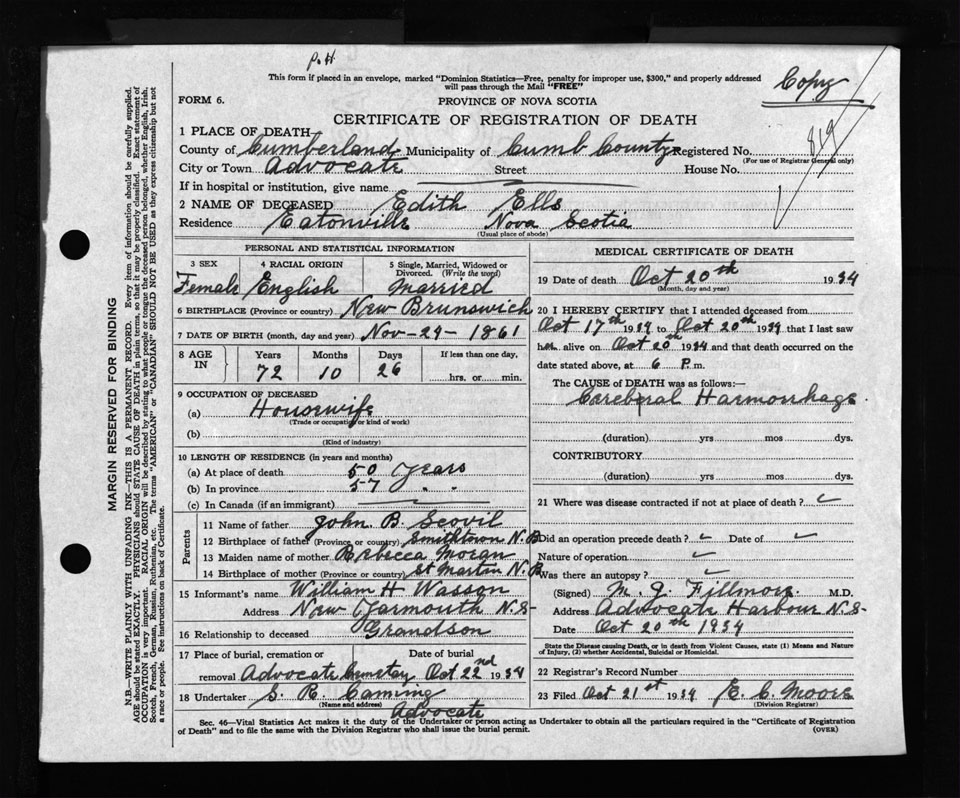 P. H.
This form if placed in an envelope, marked "Dominion Statistics—Free, penalty for improper use, $300," and properly addressed
will pass through the Mail "FREE"
Copy
FORM 6.
PROVINCE OF NOVA SCOTIA
CERTIFICATE OF REGISTRATION OF DEATH
819
1 PLACE OF DEATH
County of Cumberland Municipality of Cumb County Registered No.
(For use of Registrar General only)
City or Town Advocate Street House No.
If in hospital or institution, give name
2 NAME OF DECEASED Edith Ells
Residence Eatonville Nova Scotia
(Usual place of abode)
PERSONAL AND STATISTICAL INFORMATION
3 SEX 4 RACIAL ORIGIN 5 Single, Married, Widowed or
Divorced. (Write the word)
Female English Married
6 BIRTHPLACE (Province or country) New Brunswich
7 DATE OF BIRTH (month, day and year) Nov-24-1861
8 AGE IN Years Months Days If less than one day,
72 10 26 hrs. or min.
9 OCCUPATION OF DECEASED
(a) Housewife
(Trade or occupation or kind of work)
(b)
(Kind of industry)
10 LENGTH OF RESIDENCE (in years and months)
(a) At place of death 50 years
(b) In province 57 " "
(c) In Canada (if an immigrant)
Parents
11 Name of father John. B. Scovil
12 Birthplace of father (Province or country) Smithtown N.B
13 Maiden name of mother Rebecca Moran
14 Birthplace of mother (Province or country) St Martin N.B
15 Informant's name William H Wasson
Address New Yarmouth N.S-
16 Relationship to deceased Grandson
17 Place of burial, cremation or Date of burial
removal Advocate Cemetary Oct 22nd 1934
18 Undertaker S. R. Caming
(Name and address)
Advocate
MEDICAL CERTIFICATE OF DEATH
19 Date of death Oct 20th 1934
(Month, day and year)
20 I HEREBY CERTIFY that I attended deceased from
Oct 17th 1934 to Oct 20th 1934 that I last saw
her alive on Oct 20th 1934 and that death occurred on the
date stated above, at 6 P. m.
The CAUSE OF DEATH was as follows:—
Carebral Harmorrhage
(duration) yrs mos dys.
CONTRIBUTORY
(duration) yrs mos dys.
21 Where was disease contracted if not at place of death?
Did an operation precede death? Date of
Nature of operation
Was there an autopsy?
(Signed) M. J. Fillmore. M.D.
Address Advocate Harbour N.S-
Date Oct 20th 1934
State the Disease causing Death, or in death from Violent Causes, state (1) Means and Nature
of Injury, (2) whether Accidental, Suicidal or Homicidal.
22 Registrar's Record Number
23 Filed Oct 21st 1934 E. C. Moore
(Division Registrar)
Sec. 46—Vital Statistics Act makes it the duty of the Undertaker or person acting as Undertaker to obtain all the particulars required in the "Certificate of Registration
of Death" and to file the same with the Division Registrar who shall issue the burial permit. (OVER)
MARGIN RESERVED FOR BINDING
N.B.—WRITE PLAINLY WITH UNFADING INK—THIS IS A PERMANENT RECORD. Every item of information should be carefully supplied.
AGE should be stated EXACTLY. PHYSICIANS should STATE CAUSE OF DEATH in plain terms, so that it may be properly classified. Exact statement of
OCCUPATION is very important. RACIAL ORIGIN will be described by stating to what people or tongue the deceased person belonged, whether English, Irish,
Scotch, French, German, Russian, Ruthenian, etc. The terms "AMERICAN" or "CANADIAN" SHOULD NOT BE USED as they express citizenship but not
a race or people. See instructions on back of Certificate.